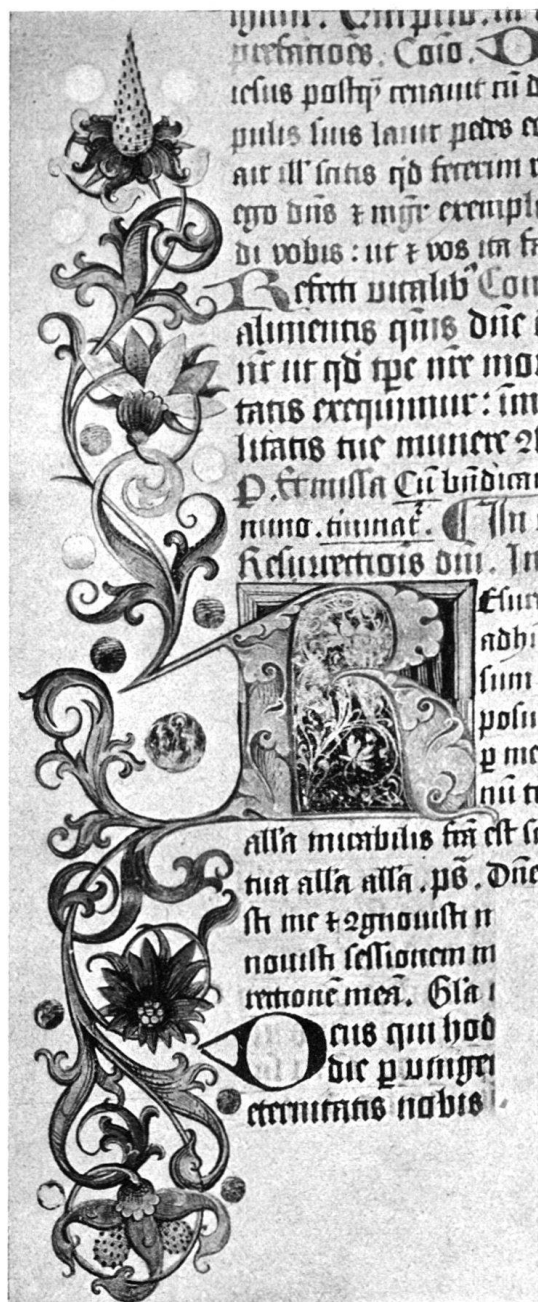 prefatiões. Cõio. D
iesus postq̃ cenauit cũ d
pulis suis lauit pedes e
ait ill' scitis qd fecerim v
ego dñs ⁊ mgr̃ exempl
di vobis : ut ⁊ vos ita fa
Refecti vitalib' Com
alimentis q̃ms dñe
nr̃ ut qd tp̃e nr̃e mor
tatis exequimur : im
litatis tue munere
P. Et missa Cũ bñdica
mino . tminat̃. In
Resurrectiõis dñi. In
Esur
adhu
sum
posu
p me
nũ t
all'a mirabilis fc̃a est sc
tua all'a all'a. ps. Dñe
sti me ⁊ ꝯgnouisti
nouisti sessionem m
rectionẽ meã. Gl'a
Deus qui hod
die p vnige
eternitatis nobis